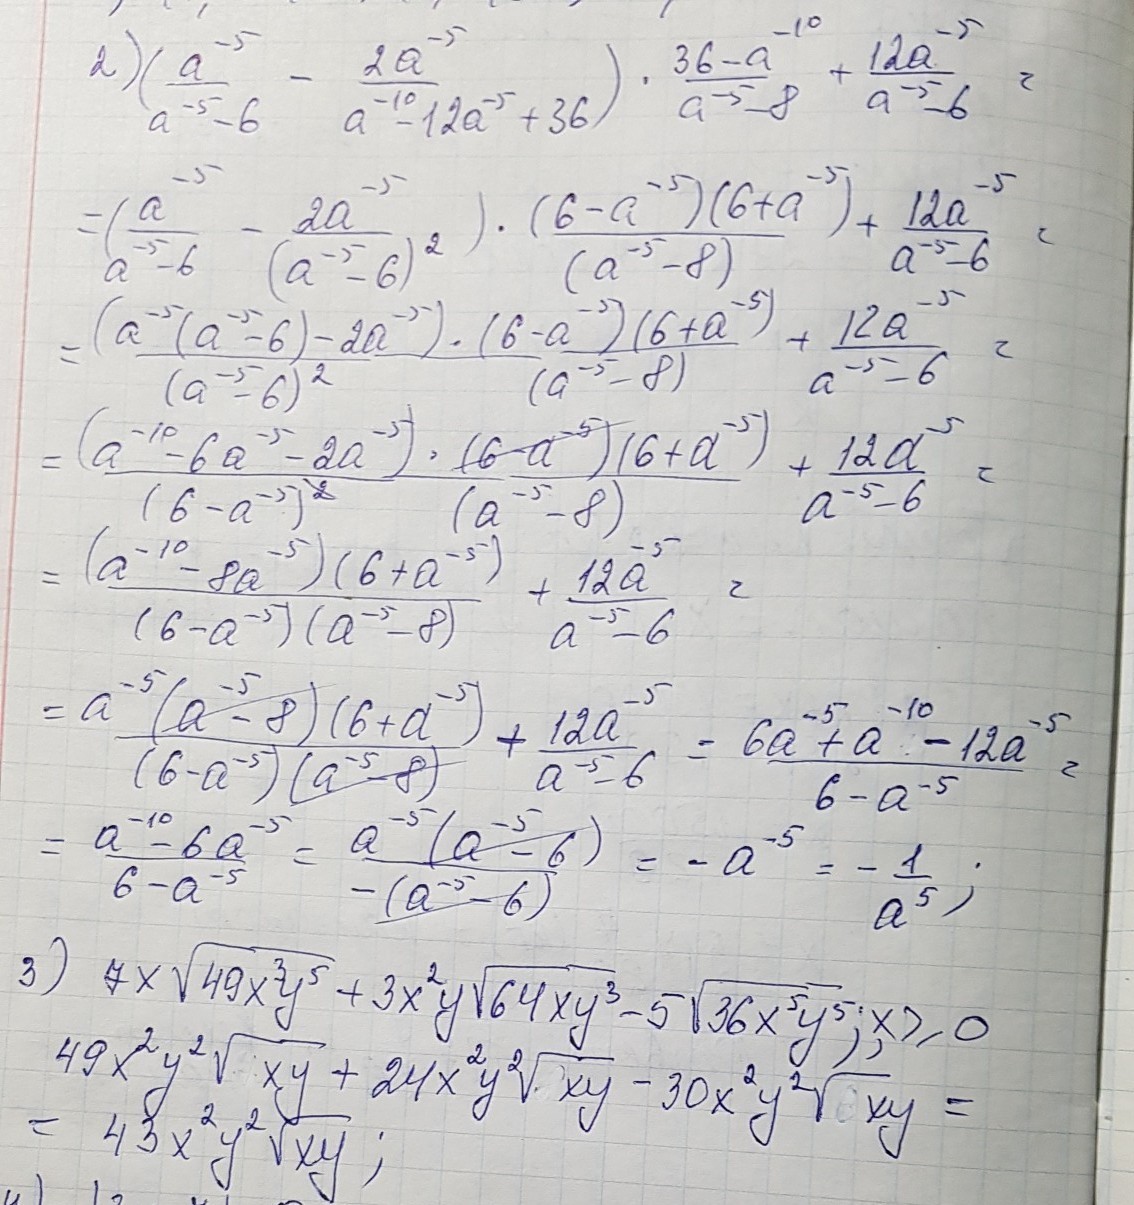 2) (a^{-5}/(a^{-5}-6) - 2a^{-5}/(a^{-10}-12a^{-5}+36)) · (36-a^{-10})/(a^{-5}-8) + 12a^{-5}/(a^{-5}-6) =
= (a^{-5}/(a^{-5}-6) - 2a^{-5}/(a^{-5}-6)^2) · (6-a^{-5})(6+a^{-5})/(a^{-5}-8) + 12a^{-5}/(a^{-5}-6) =
= (a^{-5}(a^{-5}-6)-2a^{-5})/(a^{-5}-6)^2 · (6-a^{-5})(6+a^{-5})/(a^{-5}-8) + 12a^{-5}/(a^{-5}-6) =
= (a^{-10}-6a^{-5}-2a^{-5})/(6-a^{-5})^2 · (6-a^{-5})(6+a^{-5})/(a^{-5}-8) + 12a^{-5}/(a^{-5}-6) =
= (a^{-10}-8a^{-5})(6+a^{-5})/((6-a^{-5})(a^{-5}-8)) + 12a^{-5}/(a^{-5}-6) =
= a^{-5}(a^{-5}-8)(6+a^{-5})/((6-a^{-5})(a^{-5}-8)) + 12a^{-5}/(a^{-5}-6) = (6a^{-5}+a^{-10}-12a^{-5})/(6-a^{-5}) =
= (a^{-10}-6a^{-5})/(6-a^{-5}) = a^{-5}(a^{-5}-6)/(-(a^{-5}-6)) = -a^{-5} = -1/a^5;
3) 7x√(49x^3y^5) + 3x^2y√(64xy^3) - 5√(36x^5y^5); x ≥ 0
49x^2y^2√(xy) + 24x^2y^2√(xy) - 30x^2y^2√(xy) =
= 43x^2y^2√(xy);